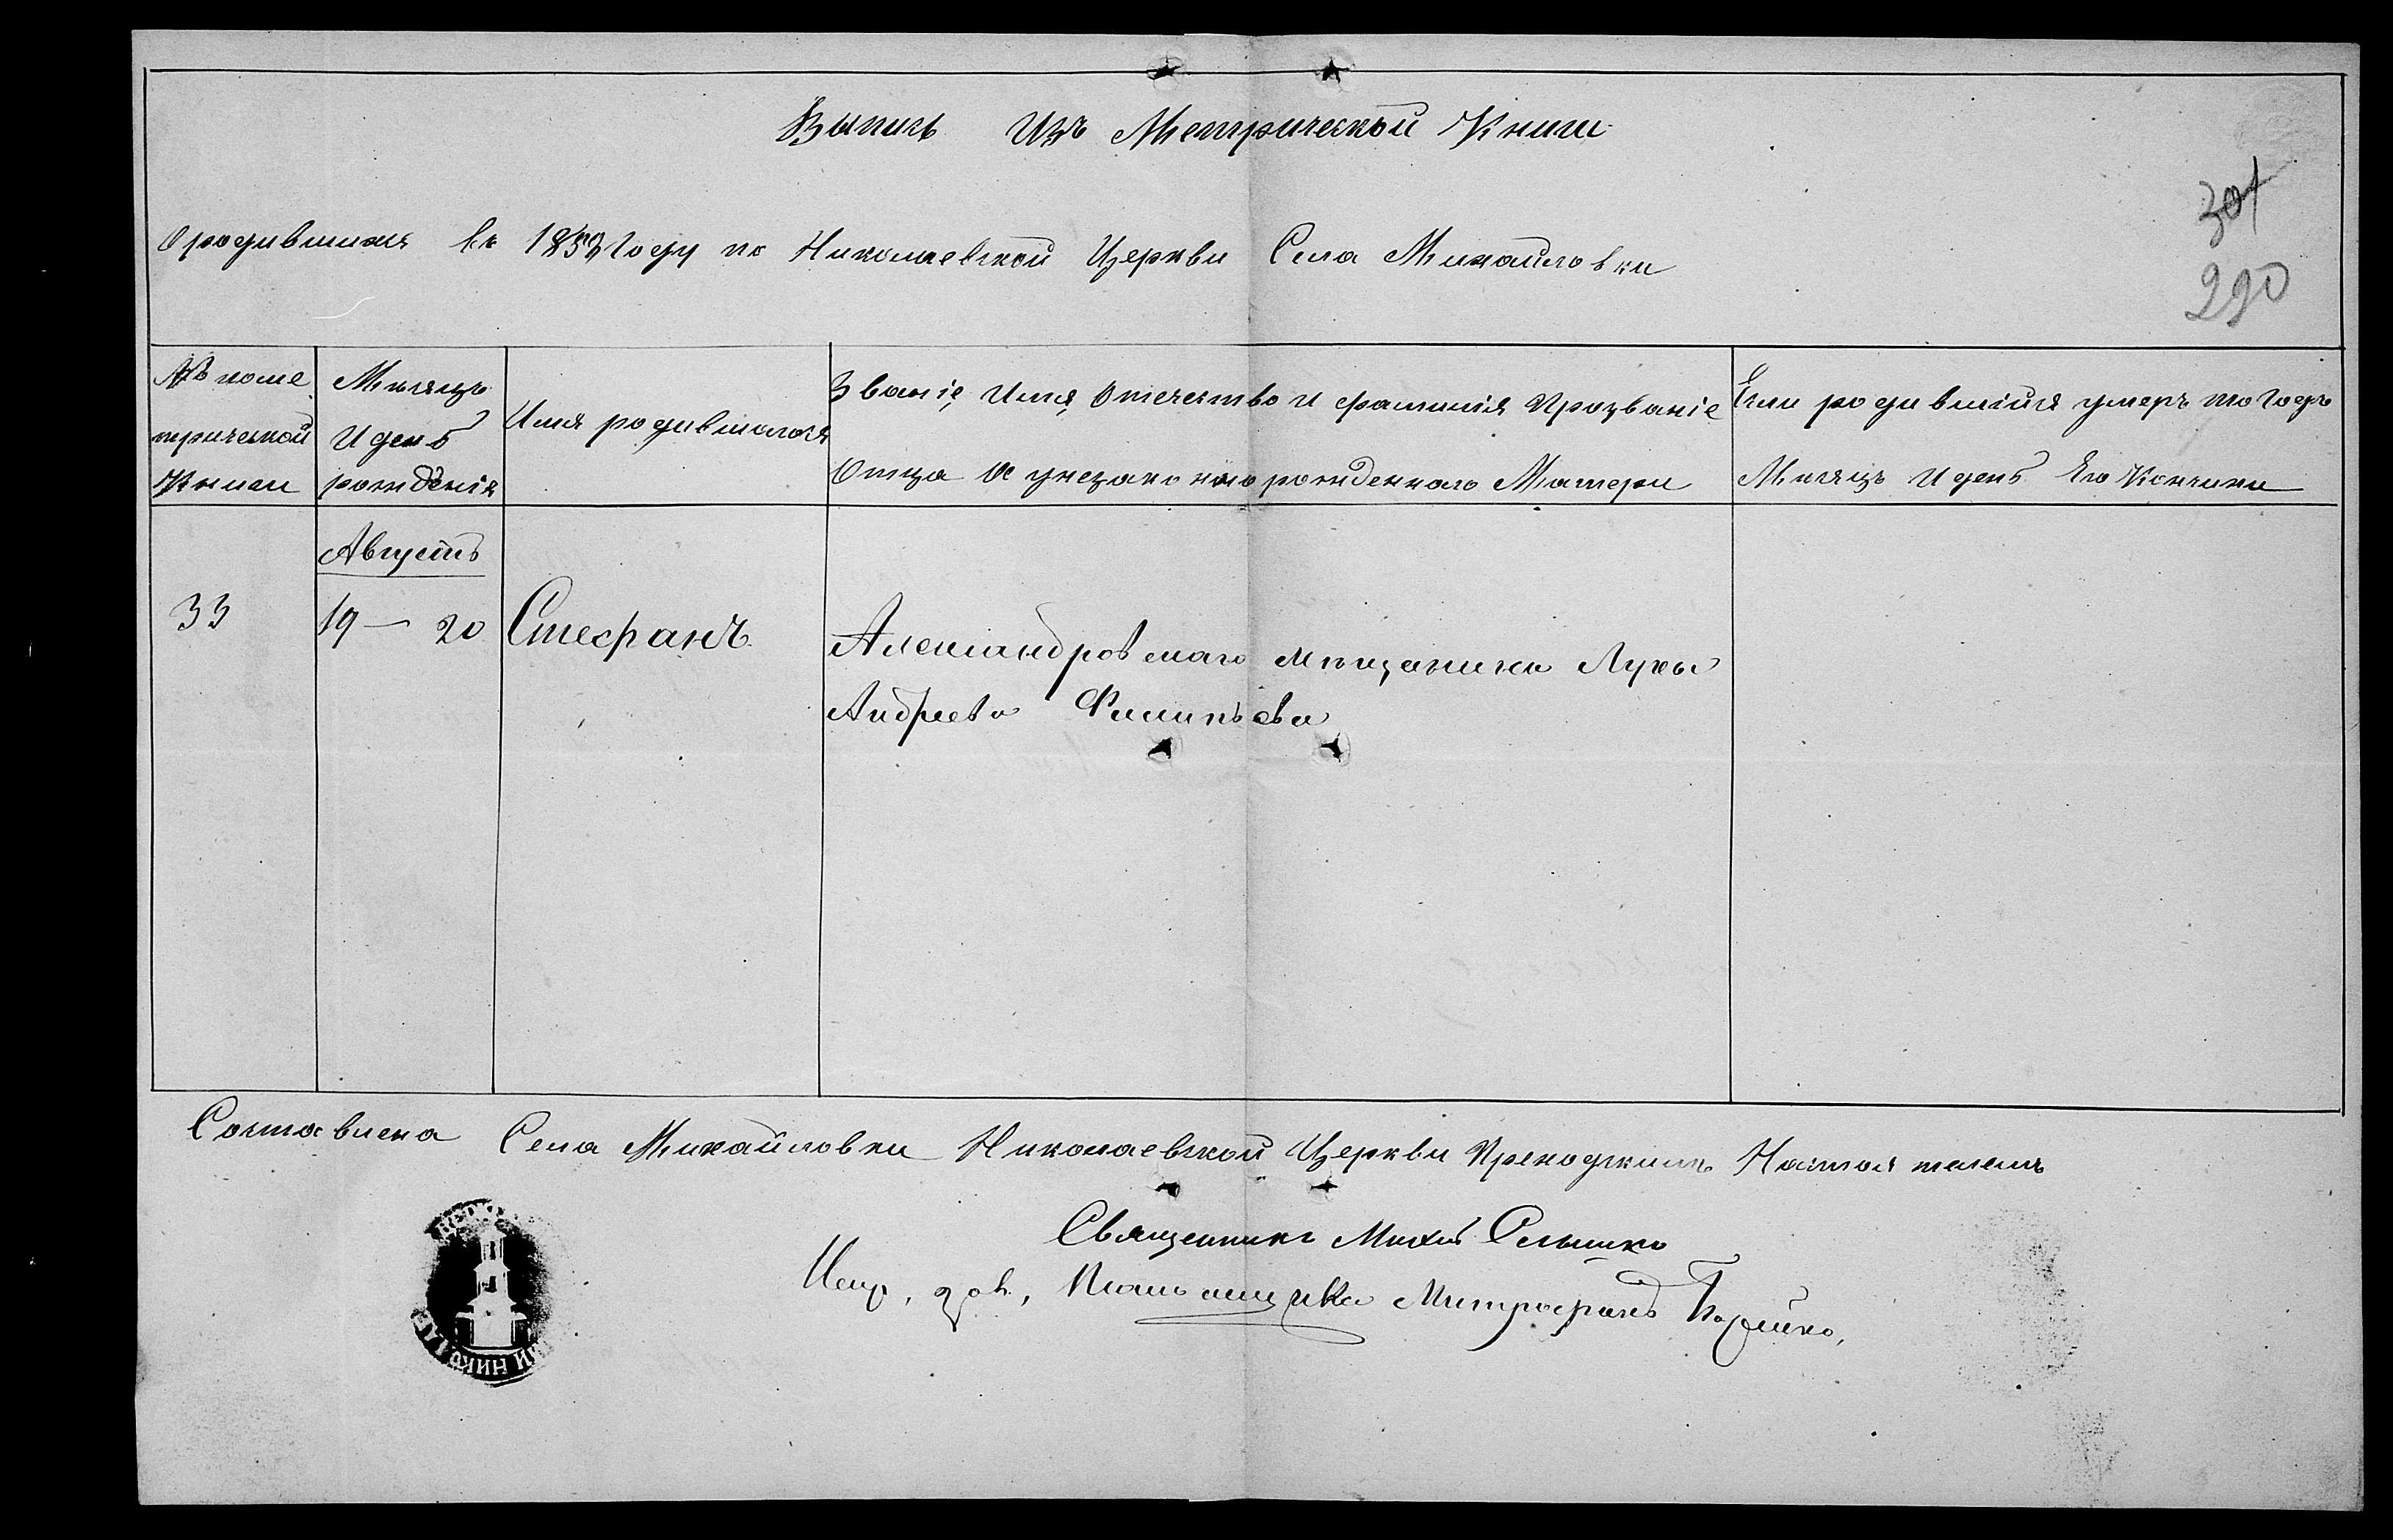 Выпись Изъ Метрической Книги
Ородившихся въ 1853 Году по Николаевской Церкви Села Михайловки
301
290
№ поме
трической
Книги
Мѣсяцъ
И день
рожденія
Имя родившагося
Званіе, Имя, Отечество и фамилія Прозваніе
Отца А унезаконно рожденнаго Матери
Если родившійся умеръ то Годъ
Мѣсяцъ И день Его Кончины
Августъ
33
19 — 20
Стефанъ
Александровскаго мѣщанина Луки
Андреева Филипьева
Составлена Села Михайловки Николаевской Церкви Приходскимъ Настоятелемъ
Священникъ
Митрофанъ
НИКОЛАЕ